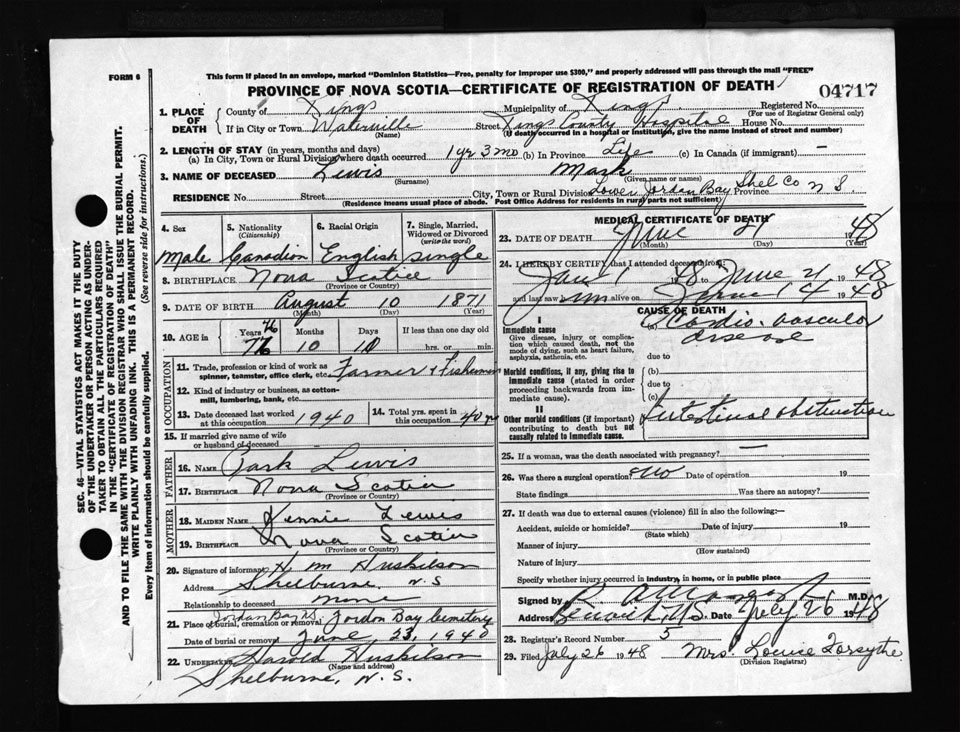 FORM 6
This form if placed in an envelope, marked "Dominion Statistics—Free, penalty for improper use $300," and properly addressed will pass through the mail "FREE"
PROVINCE OF NOVA SCOTIA—CERTIFICATE OF REGISTRATION OF DEATH
04717
1. PLACE OF DEATH
County of Kings Municipality of Kings Registered No.
(For use of Registrar General only)
If in City or Town Waterville Street Kings County Hospital House No.
(Name) (If death occurred in a hospital or institution, give the name instead of street and number)
2. LENGTH OF STAY (in years, months and days)
(a) In City, Town or Rural Division where death occurred 1 yr 3 mo (b) In Province Life (c) In Canada (if immigrant) —
3. NAME OF DECEASED Lewis Mark
(Surname) (Given name or names)
RESIDENCE No. Street City, Town or Rural Division Lower Jordan Bay Shel Co Province N S
(Residence means usual place of abode. Post Office Address for residents in rural parts not sufficient)
4. Sex
Male
5. Nationality
(Citizenship)
Canadian
6. Racial Origin
English
7. Single, Married, Widowed or Divorced
(write the word)
Single
8. BIRTHPLACE Nova Scotia
(Province or Country)
9. DATE OF BIRTH August 10 1871
(Month) (Day) (Year)
10. AGE in Years 76 Months 10 Days 10 If less than one day old hrs. or min.
76
OCCUPATION
11. Trade, profession or kind of work as spinner, teamster, office clerk, etc. Farmer & Fisherman
12. Kind of industry or business, as cotton-mill, lumbering, bank, etc.
13. Date deceased last worked at this occupation 1940
14. Total yrs. spent in this occupation 40 yr
15. If married give name of wife or husband of deceased
FATHER
16. NAME Lewis
17. BIRTHPLACE Nova Scotia
(Province or Country)
MOTHER
18. MAIDEN NAME Lewis
19. BIRTHPLACE Nova Scotia
(Province or Country)
20. Signature of informant H. M Huskilson
Address Shelburne, N.S
Relationship to deceased none
21. Place of burial, cremation or removal Jordan Bay NS Jordan Bay Cemetery
Date of burial or removal June, 23, 1940
22. Undertaker Harold Huskilson
(Name and address)
Shelburne, N.S.
MEDICAL CERTIFICATE OF DEATH
23. DATE OF DEATH June 21 1948
(Month) (Day) (Year)
24. I HEREBY CERTIFY that I attended deceased from:
Jan 1 48 to June 21 1948
and last saw him alive on June 14 1948
CAUSE OF DEATH
I
Immediate cause
Give disease, injury or complication which caused death, not the mode of dying, such as heart failure, asphyxia, asthenia, etc.
(a) Cardio-vascular disease
due to
Morbid conditions, if any, giving rise to immediate cause (stated in order proceeding backwards from immediate cause).
(b)
due to
(c)
II
Other morbid conditions (if important) contributing to death but not causally related to immediate cause.
Intestinal obstruction
25. If a woman, was the death associated with pregnancy? —
26. Was there a surgical operation? No Date of operation 19
State findings Was there an autopsy?
27. If death was due to external causes (violence) fill in also the following:—
Accident, suicide or homicide? Date of injury 19
(State which)
Manner of injury
(How sustained)
Nature of injury
Specify whether injury occurred in industry, in home, or in public place
Signed by M.D.
Address Berwick, N.S. Date July 26 1948
28. Registrar's Record Number 5
29. Filed July 26 1948 Mrs. Louise Forsythe
(Division Registrar)
SEC. 46—VITAL STATISTICS ACT MAKES IT THE DUTY OF THE UNDERTAKER OR PERSON ACTING AS UNDERTAKER TO OBTAIN ALL THE PARTICULARS REQUIRED IN THE "CERTIFICATE OF REGISTRATION OF DEATH" AND TO FILE THE SAME WITH THE DIVISION REGISTRAR WHO SHALL ISSUE THE BURIAL PERMIT.
WRITE PLAINLY WITH UNFADING INK. THIS IS A PERMANENT RECORD.
Every item of information should be carefully supplied. (See reverse side for instructions.)